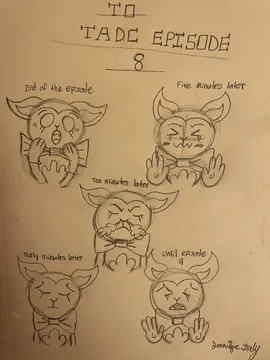 TO
TADC EPISODE
8
End of the episode
Five minutes later
Ten minutes later
Thirty minutes later
Until episode
9